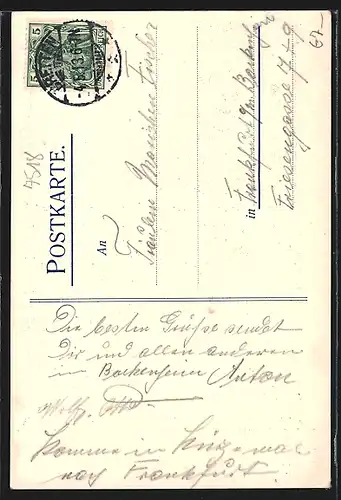 POSTKARTE.
An
Fräulein Mariechen Fischer
in Frankfurt a/m Bockenh.
Friesengasse 7 + 9
67.-
4518
5 5
Die besten Grüße sendet
Dir und allen anderen
in Bockenheim Anton
Wolf. Otto
Komme in kürze mal
nach Frankfurt.